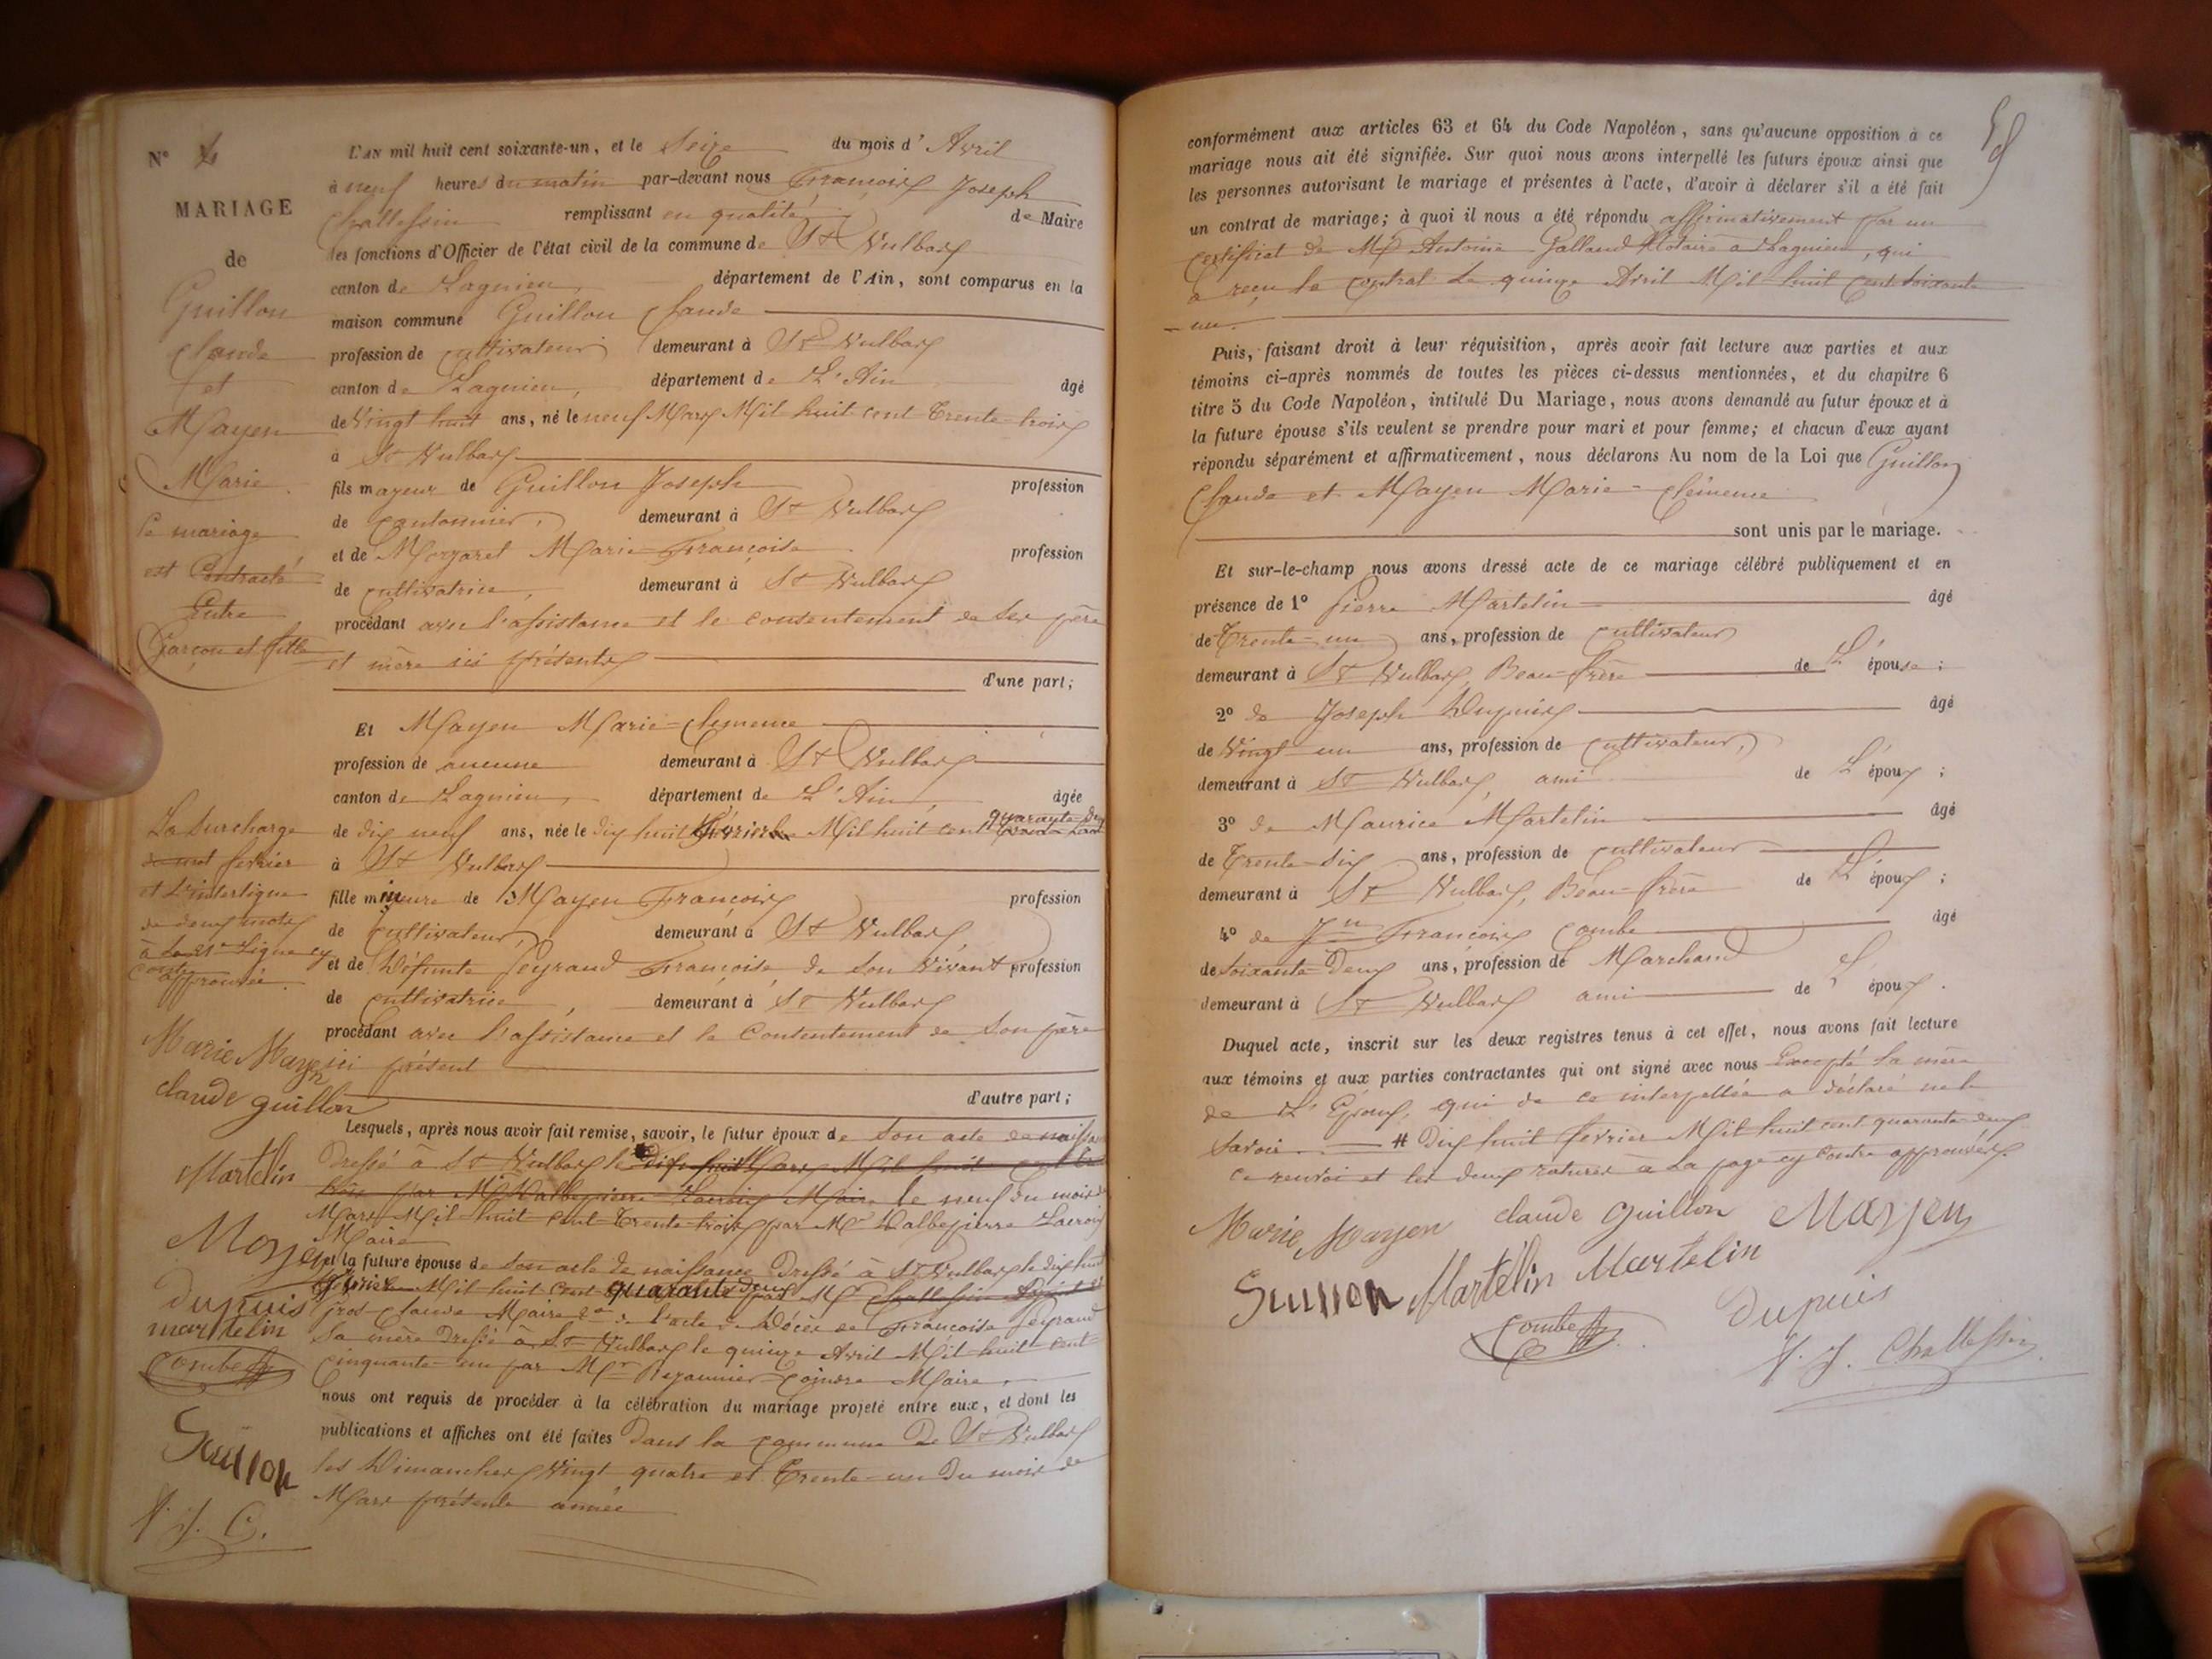 N° 4
MARIAGE
de
Guillon
Claude
et
Mayen
Marie
Le mariage
est Contracté
Entre
Garçon et fille
La Surcharge
du mot fevrier
et L'interligne
de deux mots
à La 21e Ligne cy
contre
approuvée.
Marie Mayen
claude guillon
Martelin
Mayen
dupuis
martelin
Combe
Guillon
f. J. C.
L'AN mil huit cent soixante-un, et le Seize du mois d'Avril
à neuf heures du matin par-devant nous François Joseph
Challessin remplissant en qualité de Maire
les fonctions d'Officier de l'état civil de la commune de St Vulbas
canton de Lagnieu, département de l'Ain, sont comparus en la
maison commune Guillon Claude
profession de cultivateur demeurant à St Vulbas
canton de Lagnieu, département de L'Ain âgé
de Vingt huit ans, né le neuf Mars Mil huit cent Trente-trois
à St Vulbas
fils majeur de Guillon Joseph profession
de cantonnier, demeurant à St Vulbas
et de Morgaret Marie-Françoise profession
de cultivatrice, demeurant à St Vulbas
procédant avec l'assistance et le consentement de ses père
et mère ici présents
d'une part;
Et Mayen Marie=Clemence
profession de aucune demeurant à St Vulbas
canton de Lagnieu, département de L'Ain, âgée
de dix neuf ans, née le dix huit fevrier Mil huit cent quarante deux
à St Vulbas
fille mineure de Mayen François profession
de cultivateur, demeurant à St Vulbas
et de Défunte Peyraud Françoise de Son Vivant profession
de cultivatrice, demeurant à St Vulbas
procédant avec l'assistance et le Contentement de Son père
ici présent
d'autre part;
Lesquels, après nous avoir fait remise, savoir, le futur époux de Son acte de naissance
Dressé à St Vulbas le dix huit Mars Mil huit cent
trois par Mr Dalbepierre Lacroix Maire le neuf du mois de
Mars Mil huit cent Trente-trois par Mr Dalbepierre Lacroix
Maire
et la future épouse de Son acte de naissance Dressé à St Vulbas le dix huit
fevrier Mil huit cent quarante deux par Mr
Gros Claude Maire 2° de l'acte de Décès de Françoise Peyraud
Sa mère Dressé à St Vulbas le quinze Avril Mil huit cent
cinquante-un par Mr Maire.
nous ont requis de procéder à la célébration du mariage projeté entre eux, et dont les
publications et affiches ont été faites dans la commune De St Vulbas
les Dimanches Vingt quatre et Trente-un Du mois de
Mars présente année
59
conformément aux articles 63 et 64 du Code Napoléon, sans qu'aucune opposition à ce
mariage nous ait été signifiée. Sur quoi nous avons interpellé les futurs époux ainsi que
les personnes autorisant le mariage et présentes à l'acte, d'avoir à déclarer s'il a été fait
un contrat de mariage; à quoi il nous a été répondu affirmativement par un
certificat de Me Antoine Galland Notaire à Lagnieu, qui
a reçu le contrat Le quinze Avril Mil huit Cent Soixante
- un.
Puis, faisant droit à leur réquisition, après avoir fait lecture aux parties et aux
témoins ci-après nommés de toutes les pièces ci-dessus mentionnées, et du chapitre 6
titre 5 du Code Napoléon, intitulé Du Mariage, nous avons demandé au futur époux et à
la future épouse s'ils veulent se prendre pour mari et pour femme; et chacun d'eux ayant
répondu séparément et affirmativement, nous déclarons Au nom de la Loi que Guillon
Claude et Mayen Marie=Clémence
sont unis par le mariage.
Et sur-le-champ nous avons dressé acte de ce mariage célébré publiquement et en
présence de 1° Pierre Martelin âgé
de Trente-un ans, profession de cultivateur
demeurant à St Vulbas, Beau-frère de L'épouse;
2° de Joseph Dupuis âgé
de Vingt-un ans, profession de cultivateur,
demeurant à St Vulbas, ami de L'époux;
3° de Maurice Martelin âgé
de Trente-Six ans, profession de cultivateur
demeurant à St Vulbas, Beau-frère de L'époux;
4° de Jn François Combe âgé
de Soixante-Deux ans, profession de Marchand
demeurant à St Vulbas ami de L'époux.
Duquel acte, inscrit sur les deux registres tenus à cet effet, nous avons fait lecture
aux témoins et aux parties contractantes qui ont signé avec nous Excepté La mère
de L'Époux, qui de ce interpellée a déclaré ne le
Savoir. # Dix huit fevrier Mil huit cent quarante-deux
ce renvoi et les deux ratures à La page cy Contre approuvés.
Marie Mayen claude guillon Mayen
Guillon Martelin Martelin
Combe dupuis
f. J. Challessin